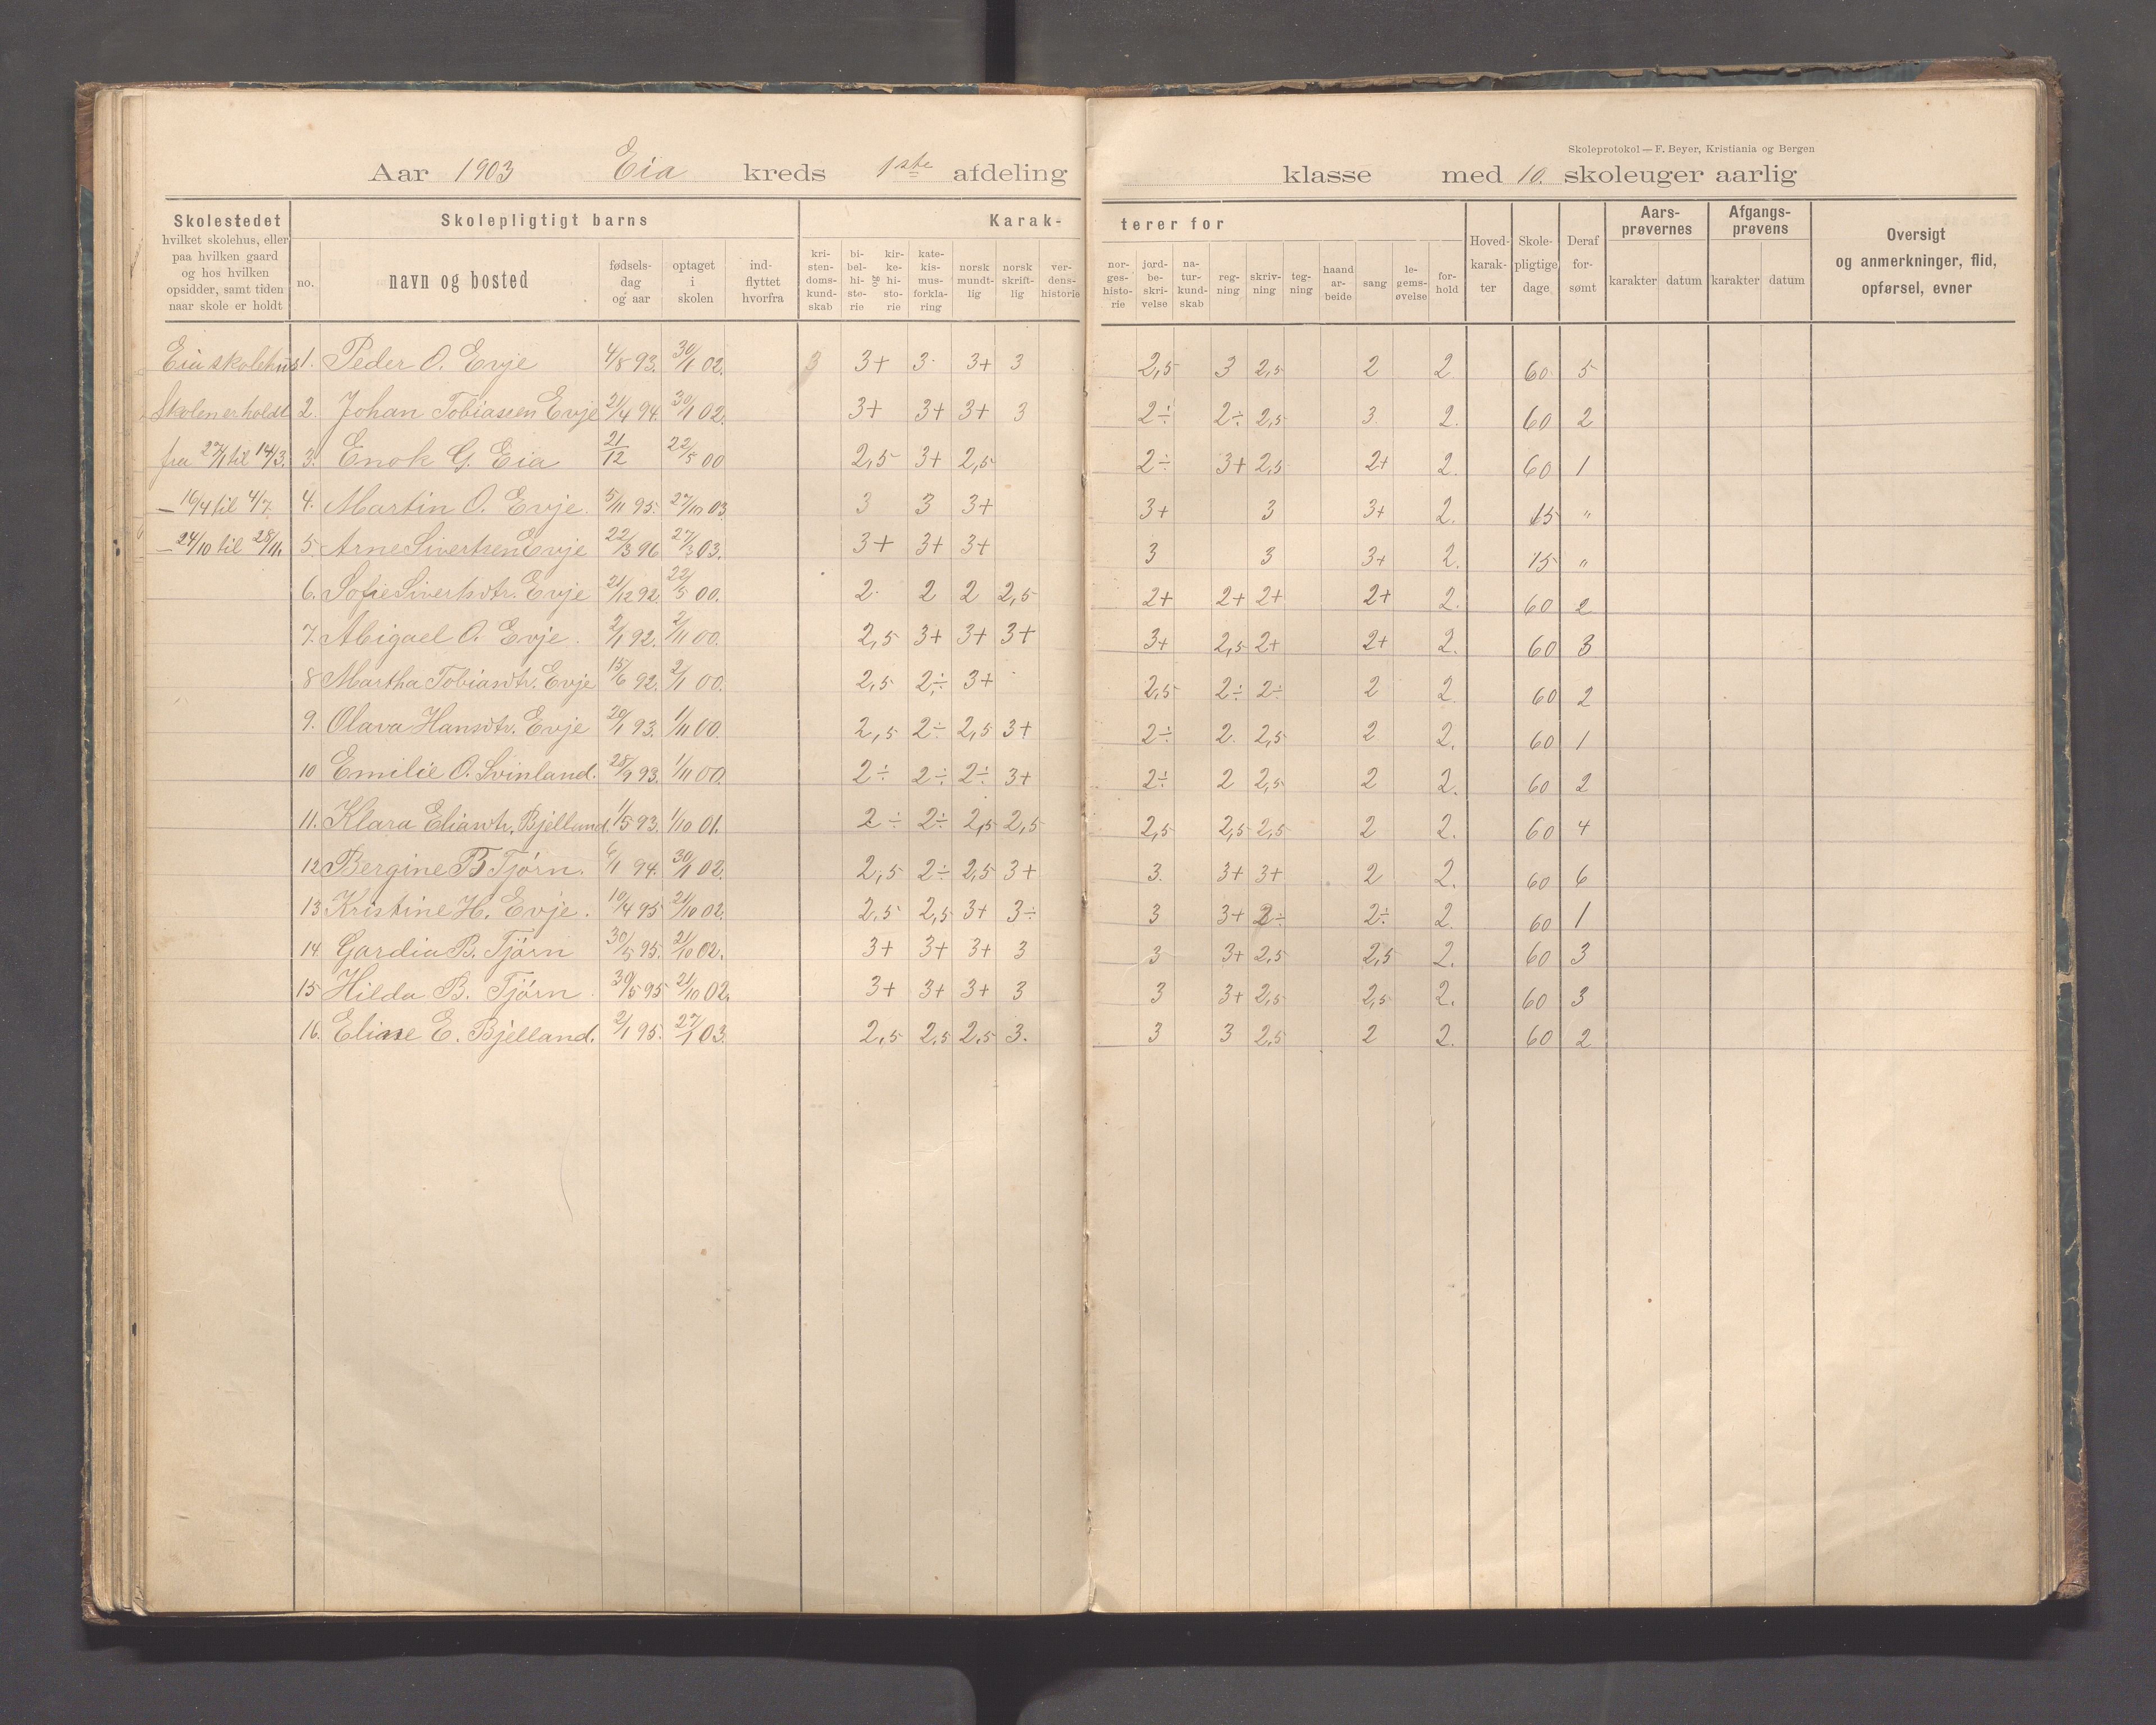 Skoleprotokol — F. Beyer, Kristiania og Bergen
Aar 1903 Eia kreds 1ste afdeling klasse med 10. skoleuger aarlig
Skolestedet hvilket skolehus, eller paa hvilken gaard og hos hvilken opsidder, samt tiden naar skole er holdt
Skolepligtigt barns
no. navn og bosted fødsels-dag og aar optaget i skolen ind-flyttet hvorfra
Karak- terer for
kri-stendoms-kund-skab bi-bel-hi-sto-rie og kir-ke-hi-sto-rie kate-kis-mus-forkla-ring norsk mundt-lig norsk skrift-lig ver-dens-historie
nor-ges-histo-rie jord-be-skri-velse na-tur-kund-skab reg-ning skriv-ning teg-ning haand ar-beide sang le-gems-øvelse for-hold
Hoved-karak-ter Skole-pligtige dage Deraf for-sømt
Aars-prøvernes karakter datum Afgangs-prøvens karakter datum
Oversigt og anmerkninger, flid, opførsel, evner
Eia skolehus 1. Peder O. Evje 4/8 93. 30/1 02. 3 3+ 3 3+ 3 2,5 3 2,5 2 2 60 5
Skolen er holdt 2. Johan Tobiassen Evje 21/4 94. 30/1 02. 3+ 3+ 3+ 3 2÷ 2÷ 2,5 3 2. 60 2
fra 27/1 til 14/3. 3. Enok G. Eia 21/12 22/5 00 2,5 3+ 2,5 2÷ 3+ 2,5 2+ 2. 60 1
— 16/4 til 4/7. 4. Martin O. Evje. 5/11 95. 27/10 03. 3 3 3+ 3+ 3 3+ 2. 15 "
— 24/10 til 28/11. 5. Arne Sivertsen Evje 22/3 96 27/3 03. 3+ 3+ 3+ 3 3 3+ 2. 15 "
6. Sofie Sivertsdtr. Evje 21/12 92. 22/5 00. 2. 2 2 2,5 2+ 2+ 2+ 2+ 2. 60 2
7. Abigael O. Evje. 2/1 92. 2/11 00. 2,5 3+ 3+ 3+ 3+ 2,5 2+ 2+ 2. 60 3
8 Martha Tobiasdtr. Evje 15/6 92. 2/1 00. 2,5 2÷ 3+ 2,5 2÷ 2÷ 2 2 60 2
9. Olava Hansdtr. Evje 20/1 93. 1/11 00. 2,5 2÷ 2,5 3+ 2÷ 2. 2,5 2 2. 60 1
10 Emilie O. Svinland. 28/9 93. 1/11 00. 2÷ 2÷ 2÷ 3+ 2÷ 2 2,5 2 2. 60 2
11. Klara Eliasdtr. Bjelland. 1/5 93. 1/10 01. 2÷ 2÷ 2,5 2,5 2,5 2,5 2,5 2 2. 60 4
12 Bergine B Tjörn. 6/1 94. 30/1 02. 2,5 2÷ 2,5 3+ 3. 3+ 3+ 2 2. 60 6
13 Kristine H. Evje. 10/4 95 21/10 02. 2,5 2,5 3+ 3÷ 3 3+ 2÷ 2÷ 2. 60 1
14. Gardia B. Tjörn 30/5 95. 21/10 02. 3+ 3+ 3+ 3 3 3+ 2,5 2,5 2. 60 3
15 Hilda B. Tjörn. 30/5 95 21/10 02. 3+ 3+ 3+ 3 3 3+ 2,5 2,5 2. 60 3
16. Eline E. Bjelland. 2/1 95. 27/1 03. 2,5 2,5 2,5 3. 3 3 2,5 2 2. 60 2